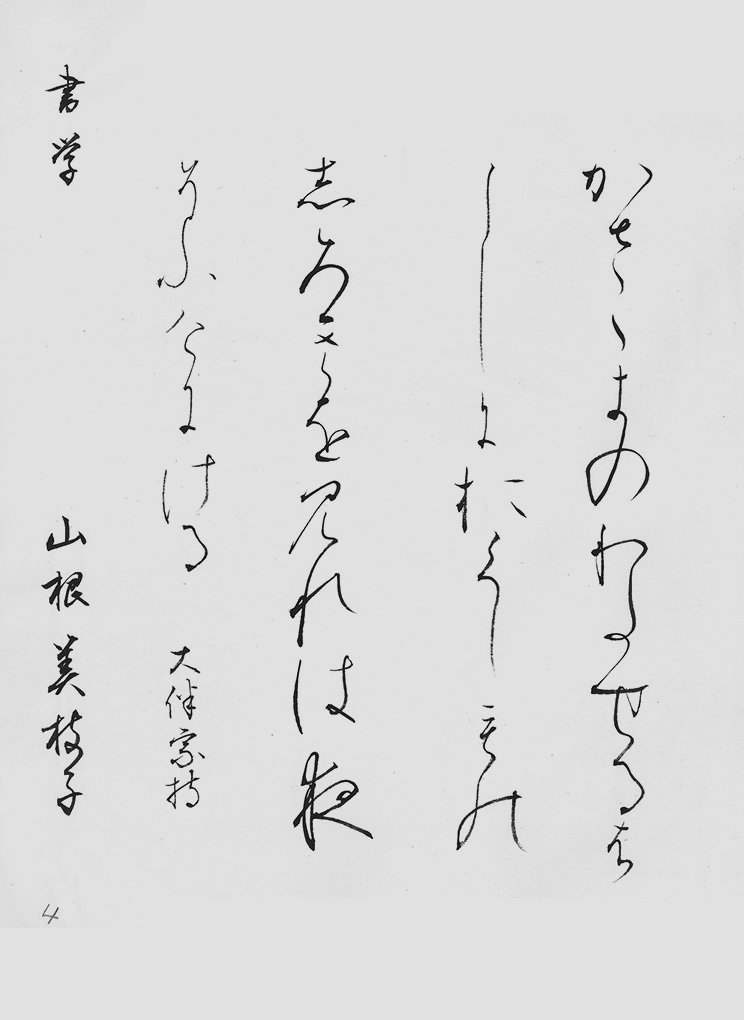 かさゝきのわたせるは
しにおくしもの
志ろきを見れは夜
そふけにける 大伴家持
書学 山根美枝子
4